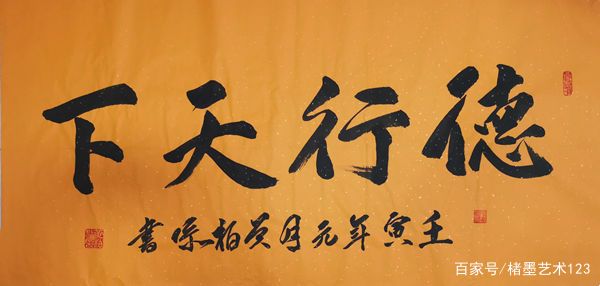 德行天下
壬寅年元月柏書
百家号/楮墨艺术123